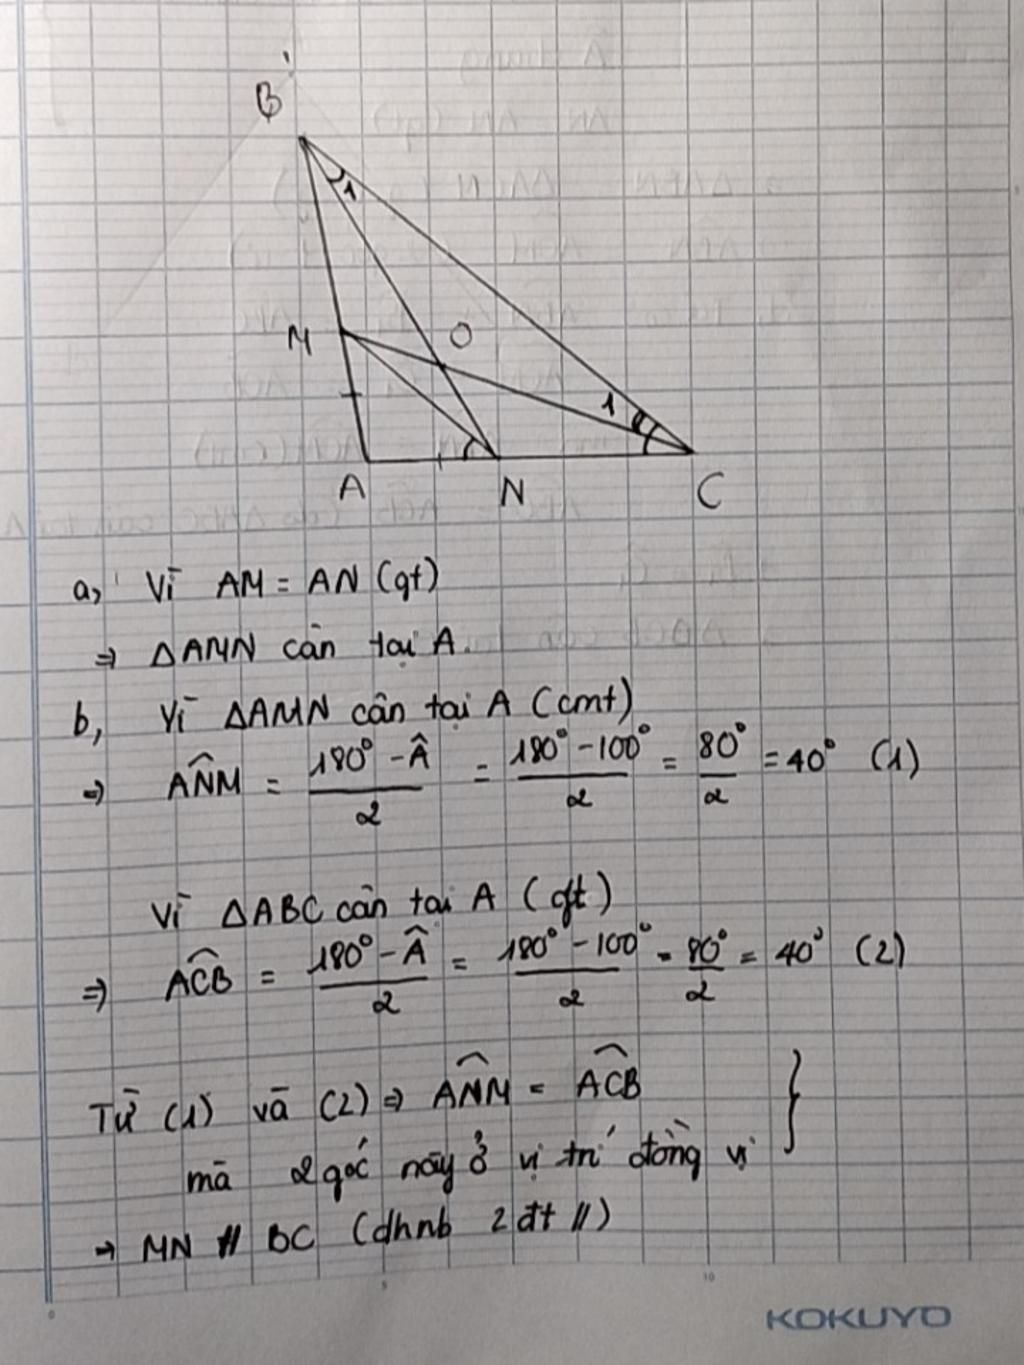 B
1
M
O
1
A
N
C
a, Vì AM = AN (gt)
⇒ ΔAMN cân tại A.
b, Vì ΔAMN cân tại A (cmt)
⇒ \widehat{ANM} = \frac{180° - \hat{A}}{2} = \frac{180° - 100°}{2} = \frac{80°}{2} = 40° (1)
Vì ΔABC cân tại A (gt)
⇒ \widehat{ACB} = \frac{180° - \hat{A}}{2} = \frac{180° - 100°}{2} = \frac{80°}{2} = 40° (2)
Từ (1) và (2) ⇒ \widehat{ANM} = \widehat{ACB}
mà 2 góc này ở vị trí đồng vị
→ MN // BC (dhnb 2 đt //)
0 5 10
KOKUYO